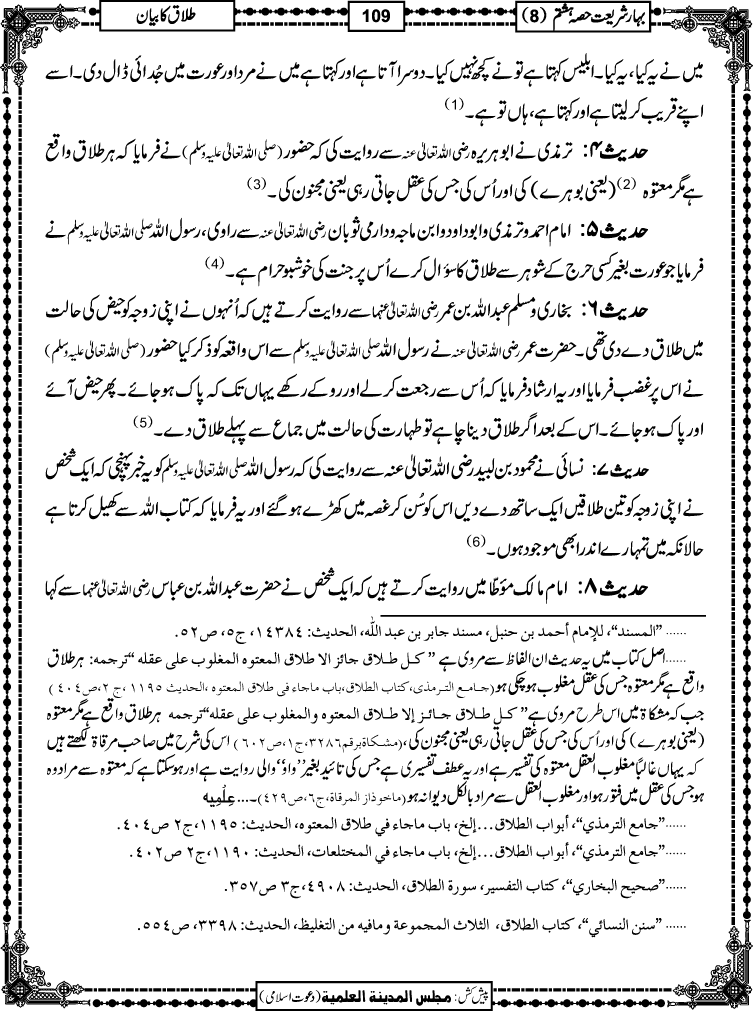 بہار شریعت حصہ ہشتم (8)
109
طلاق کا بیان
میں نے یہ کیا، یہ کیا۔ ابلیس کہتا ہے تو نے کچھ نہیں کیا۔ دوسرا آتا ہے اور کہتا ہے میں نے مرد اور عورت میں جُدائی ڈال دی۔ اسے
اپنے قریب کر لیتا ہے اور کہتا ہے، ہاں تو ہے۔ (1)
حدیث ۴: ترمذی نے ابوہریرہ رضی اللہ تعالیٰ عنہ سے روایت کی کہ حضور (صلی اللہ تعالیٰ علیہ وسلم) نے فرمایا کہ ہر طلاق واقع
ہے مگر معتوہ (2) (یعنی بوہرے) کی اور اُس کی جس کی عقل جاتی رہی یعنی مجنون کی۔ (3)
حدیث ۵: امام احمد و ترمذی و ابو داود و ابن ماجہ و دارمی ثوبان رضی اللہ تعالیٰ عنہ سے راوی، رسول اللہ صلی اللہ تعالیٰ علیہ وسلم نے
فرمایا جو عورت بغیر کسی حرج کے شوہر سے طلاق کا سؤال کرے اُس پر جنت کی خوشبو حرام ہے۔ (4)
حدیث ۶: بخاری و مسلم عبداللہ بن عمر رضی اللہ تعالیٰ عنہما سے روایت کرتے ہیں کہ اُنہوں نے اپنی زوجہ کو حیض کی حالت
میں طلاق دے دی تھی۔ حضرت عمر رضی اللہ تعالیٰ عنہ نے رسول اللہ صلی اللہ تعالیٰ علیہ وسلم سے اس واقعہ کو ذکر کیا حضور (صلی اللہ تعالیٰ علیہ وسلم)
نے اس پر غضب فرمایا اور یہ ارشاد فرمایا کہ اُس سے رجعت کر لے اور روکے رکھے یہاں تک کہ پاک ہو جائے۔ پھر حیض آئے
اور پاک ہو جائے۔ اس کے بعد اگر طلاق دینا چاہے تو طہارت کی حالت میں جماع سے پہلے طلاق دے۔ (5)
حدیث ۷: نسائی نے محمود بن لبید رضی اللہ تعالیٰ عنہ سے روایت کی کہ رسول اللہ صلی اللہ تعالیٰ علیہ وسلم کو یہ خبر پہنچی کہ ایک شخص
نے اپنی زوجہ کو تین طلاقیں ایک ساتھ دے دیں اس کو سُن کر غصہ میں کھڑے ہو گئے اور یہ فرمایا کہ کتاب اللہ سے کھیل کرتا ہے
حالانکہ میں تمہارے اندر ابھی موجود ہوں۔ (6)
حدیث ۸: امام مالک مؤطا میں روایت کرتے ہیں کہ ایک شخص نے حضرت عبداللہ بن عباس رضی اللہ تعالیٰ عنہما سے کہا
...... ”المسند“، للإمام أحمد بن حنبل، مسند جابر بن عبد اللّٰه، الحدیث: ١٤٣٨٤، ج٥، ص٥٢.
......اصل کتاب میں یہ حدیث ان الفاظ سے مروی ہے ” کل طلاق جائز الا طلاق المعتوه المغلوب علی عقله “ترجمہ: ہر طلاق
واقع ہے مگر معتوہ جس کی عقل مغلوب ہو چکی ہو (جامع الترمذی، کتاب الطلاق، باب ماجاء فی طلاق المعتوه ،الحدیث ١١٩٥ ،ج ٢،ص٤٠٤)
جب کہ مشکاۃ میں اس طرح مروی ہے” کل طلاق جائز إلا طلاق المعتوه والمغلوب علی عقله“ترجمہ ہر طلاق واقع ہے مگر معتوہ
(یعنی بوہرے) کی اور اُس کی جس کی عقل جاتی رہی یعنی مجنون کی،(مشکاة برقم٣٢٨٦،ج١،ص٦٠٢) اس کی شرح میں صاحب مرقاۃ لکھتے ہیں
کہ یہاں غالباً مغلوب العقل معتوہ کی تفسیر ہے اور یہ عطف تفسیری ہے جس کی تائید بغیر ”واؤ“ والی روایت ہے اور ہو سکتا ہے کہ معتوہ سے مراد وہ
ہو جس کی عقل میں فتور ہو اور مغلوب العقل سے مراد بالکل دیوانہ ہو (ماخوذاز المرقاة،ج٦،ص٤٢٩)۔... عِلْمِیه
......”جامع الترمذي“، أبواب الطلاق...إلخ، باب ماجاء في طلاق المعتوه، الحدیث: ١١٩٥،ج٢ ص٤٠٤.
......”جامع الترمذي“، أبواب الطلاق...إلخ، باب ماجاء في المختلعات، الحدیث: ١١٩٠،ج٢ ص٤٠٢.
......”صحیح البخاري“، کتاب التفسیر، سورة الطلاق، الحدیث: ٤٩٠٨،ج٣ ص٣٥٧.
...... ”سنن النسائي“، کتاب الطلاق، الثلاث المجموعة ومافیه من التغلیظ، الحدیث: ٣٣٩٨، ص٥٥٤.
پیش کش: مجلس المدینة العلمیة (دعوت اسلامی)